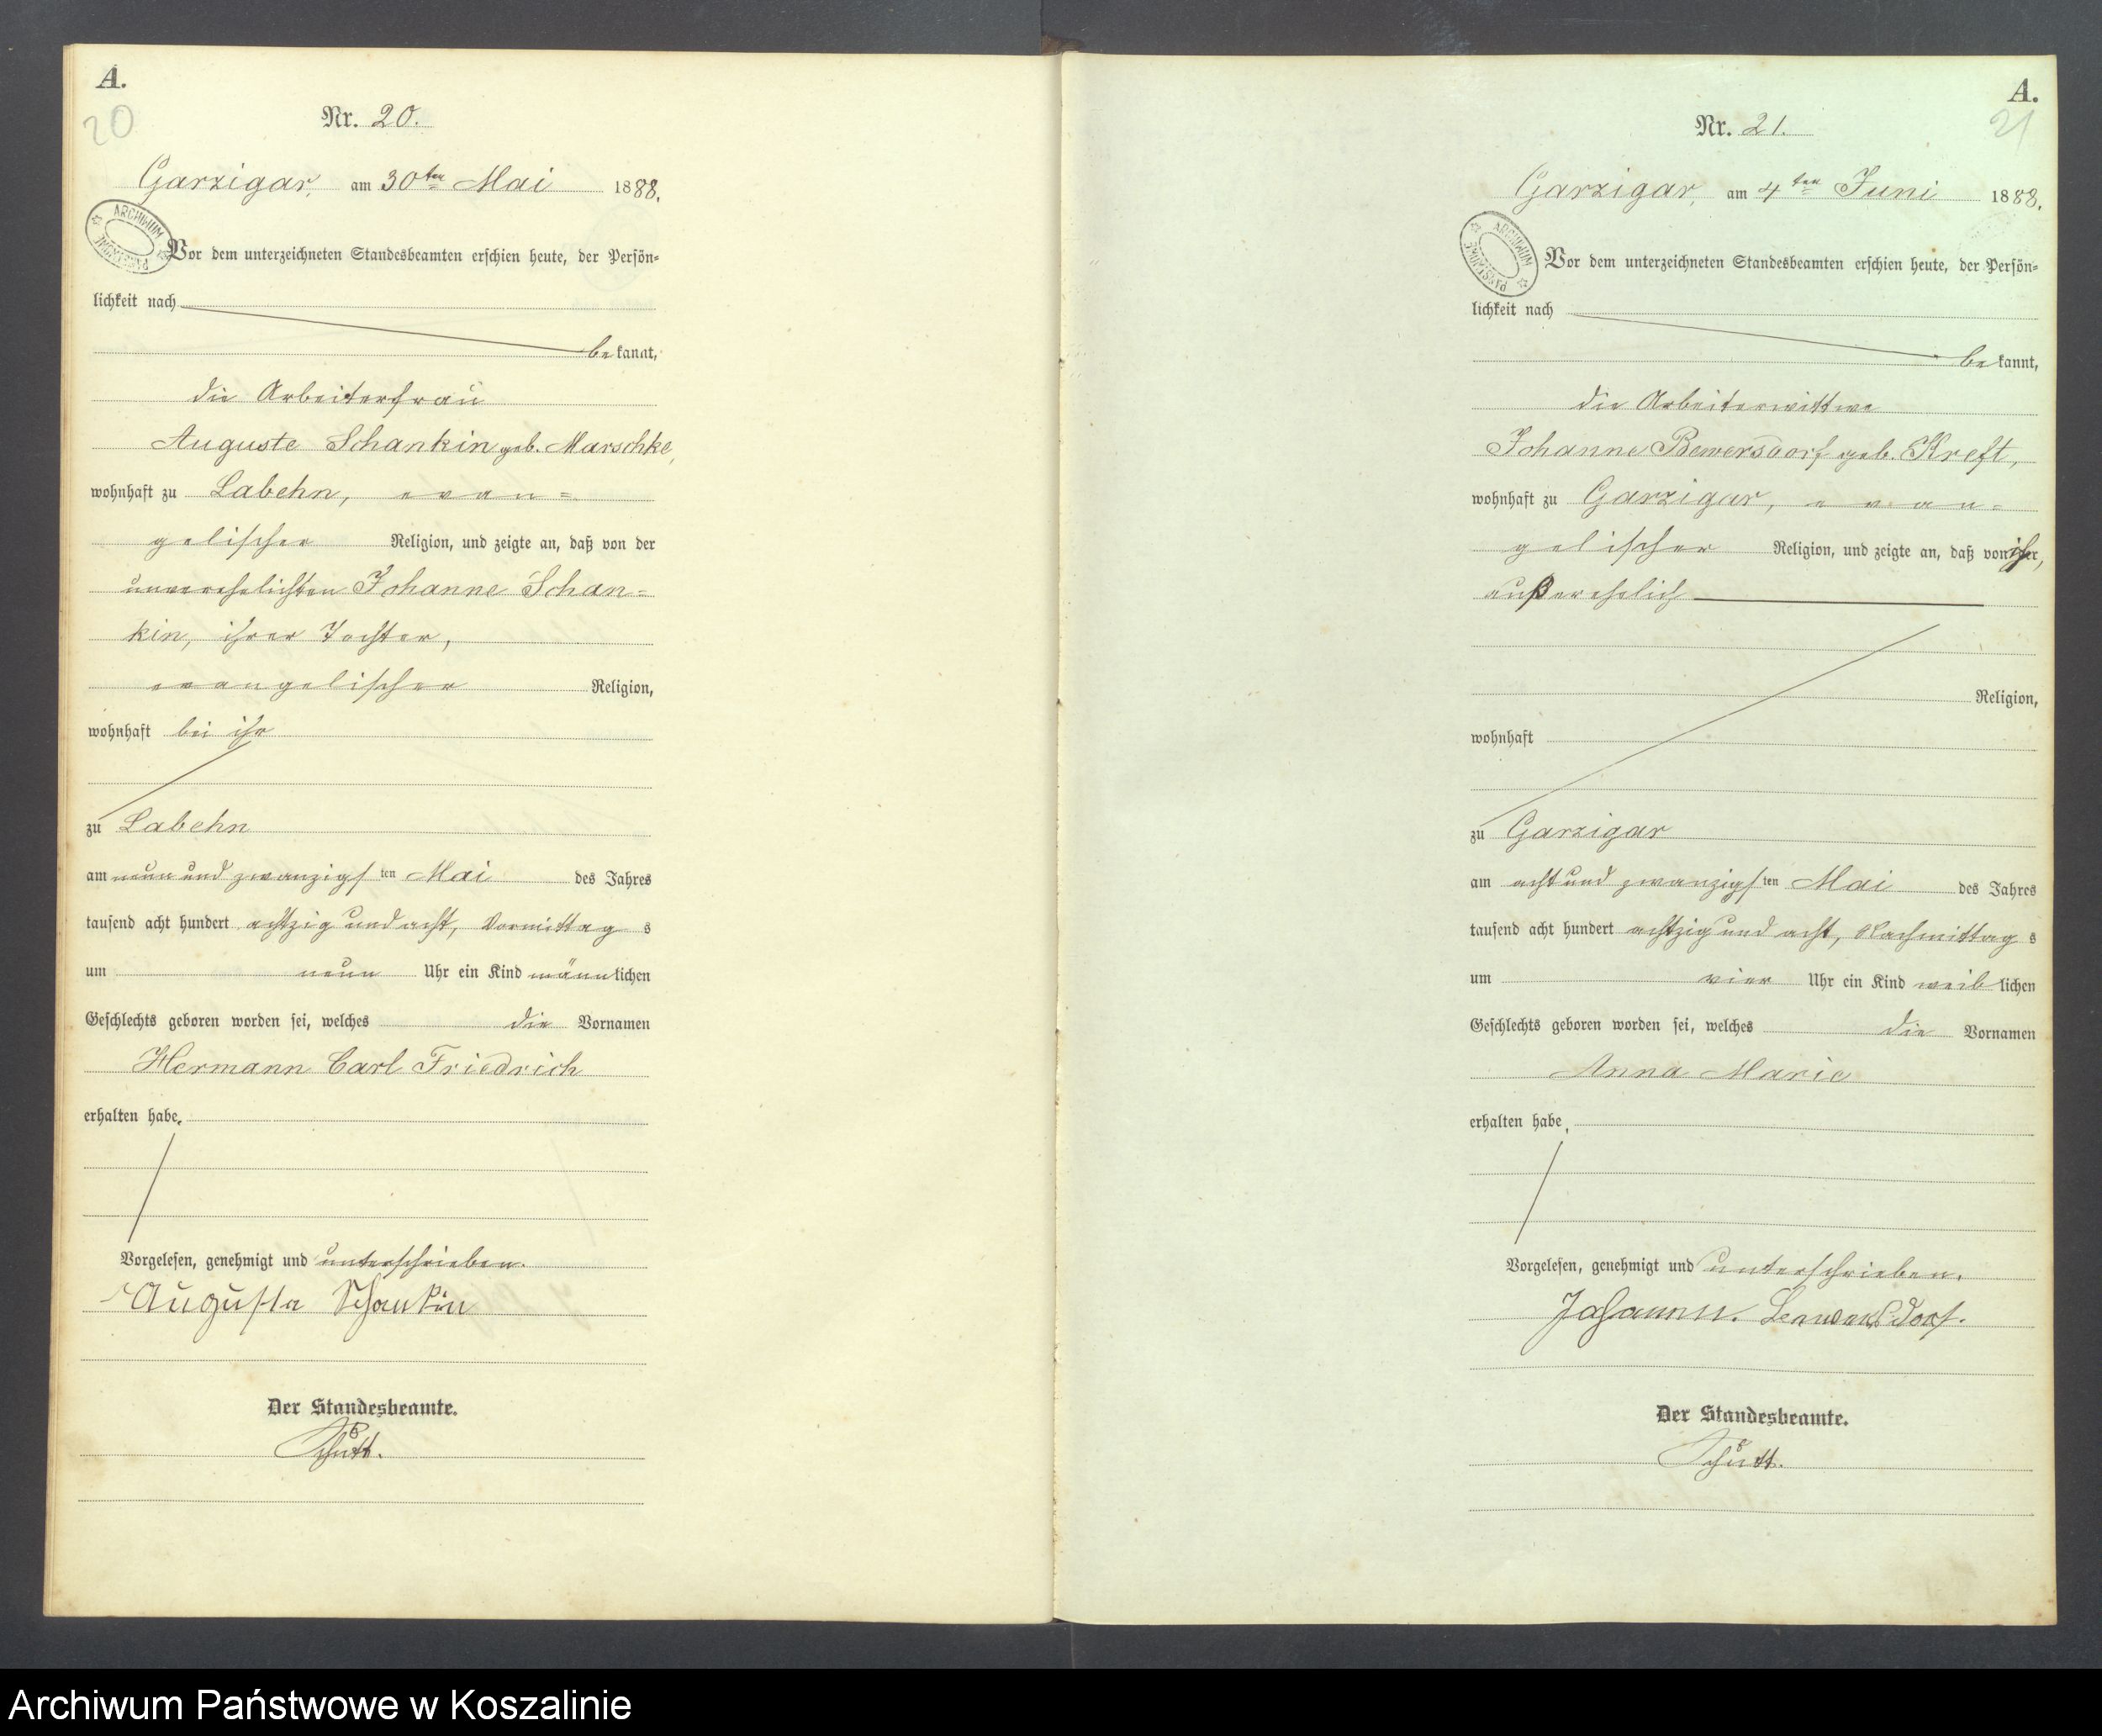 A.
20
Nr. 20.
Garzigar, am 30ten Mai 1888.
ARCHIWUM PAŃSTWOWE
Vor dem unterzeichneten Standesbeamten erschien heute, der Persön-
lichkeit nach
bekannt,
die Arbeiterfrau
Auguste Schankin geb. Marschke,
wohnhaft zu Labehn, evan=
gelischer Religion, und zeigte an, daß von der
unverehelichten Johanne Schan=
kin, ihrer Tochter,
evangelischer Religion,
wohnhaft bei ihr
zu Labehn
am neun und zwanzigsten Mai des Jahres
tausend acht hundert achtzig und acht, Vormittags
um neun Uhr ein Kind männlichen
Geschlechts geboren worden sei, welches die Vornamen
Hermann Carl Friedrich
erhalten habe.
Vorgelesen, genehmigt und unterschrieben.
Augusta Schankin
Der Standesbeamte.
Schütt.
A.
21
Nr. 21.
Garzigar, am 4ten Juni 1888.
ARCHIWUM PAŃSTWOWE
Vor dem unterzeichneten Standesbeamten erschien heute, der Persön-
lichkeit nach
bekannt,
die Arbeiterwittwe
Johanne Bewersdorf geb. Kreft,
wohnhaft zu Garzigar, evan=
gelischer Religion, und zeigte an, daß von ihr,
außerehelich
Religion,
wohnhaft
zu Garzigar
am acht und zwanzigsten Mai des Jahres
tausend acht hundert achtzig und acht, Nachmittags
um vier Uhr ein Kind weiblichen
Geschlechts geboren worden sei, welches die Vornamen
Anna Marie
erhalten habe.
Vorgelesen, genehmigt und unterschrieben.
Johanne. Bewersdorf.
Der Standesbeamte.
Schütt.
Archiwum Państwowe w Koszalinie